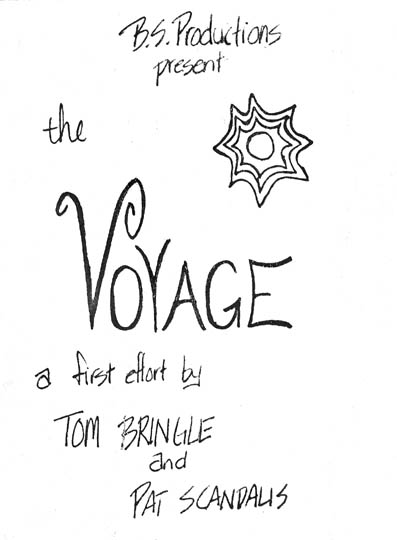 B.S. Productions
present
the
VOYAGE
a first effort by
TOM BRINGLE
and
PAT SCANDALIS